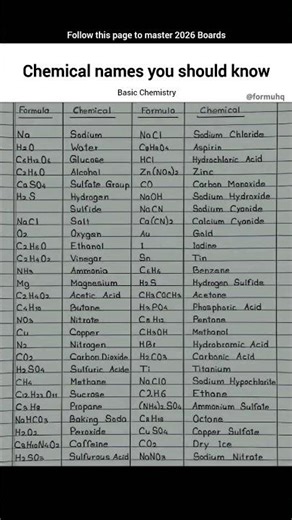 Follow this page to master 2026 Boards
Chemical names you should know
Basic Chemistry
@formuhq
Formula Chemical Formula Chemical
Na Sodium NaCl Sodium Chloride
H2O Water C9H8O4 Aspirin
C6H12O6 Glucose HCl Hydrochloric Acid
C2H6O Alcohol Zn(NO3)2 Zinc
CaSO4 Sulfate Group CO Carbon Monoxide
H2S Hydrogen NaOH Sodium Hydroxide
Sulfide NaCN Sodium Cyanide
NaCl Salt Ca(CN)2 Calcium Cyanide
O2 Oxygen Au Gold
C2H6O Ethanol I Iodine
C2H4O2 Vinegar Sn Tin
NH3 Ammonia C6H6 Benzane
Mg Magnesium H2S Hydrogen Sulfide
C2H4O2 Acetic Acid CH3COCH3 Acetone
C4H10 Butane H3PO4 Phosphoric Acid
NO3 Nitrate Pentane
Cu Copper CH3OH Methanol
N2 Nitrogen HBr Hydrobromic Acid
CO2 Carbon Dioxide H2CO3 Carbonic Acid
H2SO4 Sulfuric Acid Ti Titanium
CH4 Methane NaClO Sodium Hypochlorite
C12H22O11 Sucrose C2H6 Ethane
C3H8 Propane (NH4)2SO4 Ammonium Sulfate
NaHCO3 Baking Soda C8H18 Octane
H2O2 Peroxide CuSO4 Copper Sulfate
C8H10N4O2 Caffeine CO2 Dry Ice
H2SO3 Sulfurous Acid NaNO3 Sodium Nitrate